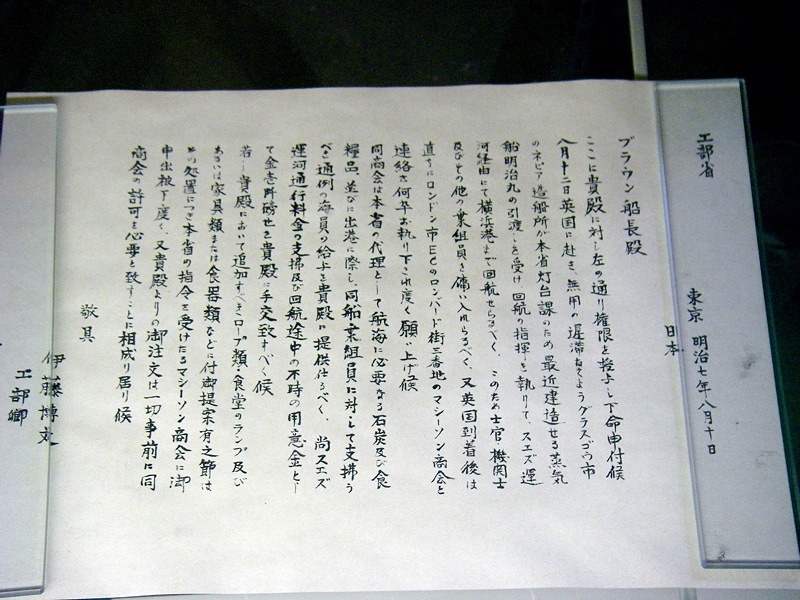 工部省
東京 明治七年八月十日
日本
ブラウン船長殿
ここに貴殿に対し左の通り権限を授与し下命申付候
八月十二日英国に赴き、無用の遅滞なくようグラスゴウ市
のネピア造船所が本省灯台課のため最近建造せる蒸気
船明治丸の引渡しを受け、回航の指揮を執りて、スエズ運
河経由にて横浜港まで回航せらるべく、このため士官・機関士
及びその他の乗組員を傭い入れらるべく、又英国到着後は
直ちにロンドン市ECのロンバード街三番地のマシーソン商会と
連絡を何卒お執り下され度く願い上げ候
同商会は本省の代理として航海に必要なる石炭及び食
糧品、並びに出港に際し、同船乗組員に対して支拂う
べき通例の海員の給与を貴殿に提供仕るべく、尚スエズ
運河通行料金の支拂及び回航途中の不時の用意金とし
て金壱阡磅也を貴殿に手交致すべく候
若し貴殿において追加すべきロープ類・食堂のランプ及び
あるいは家具類または食器類などに付御提案有之節は
の処置につき本省の指令を受けたるマシーソン商会に御
申出被下度く、又貴殿よりの御注文は一切事前に同
商会の許可を必要と致すことに相成り居り候
敬具
伊藤博文
工部卿